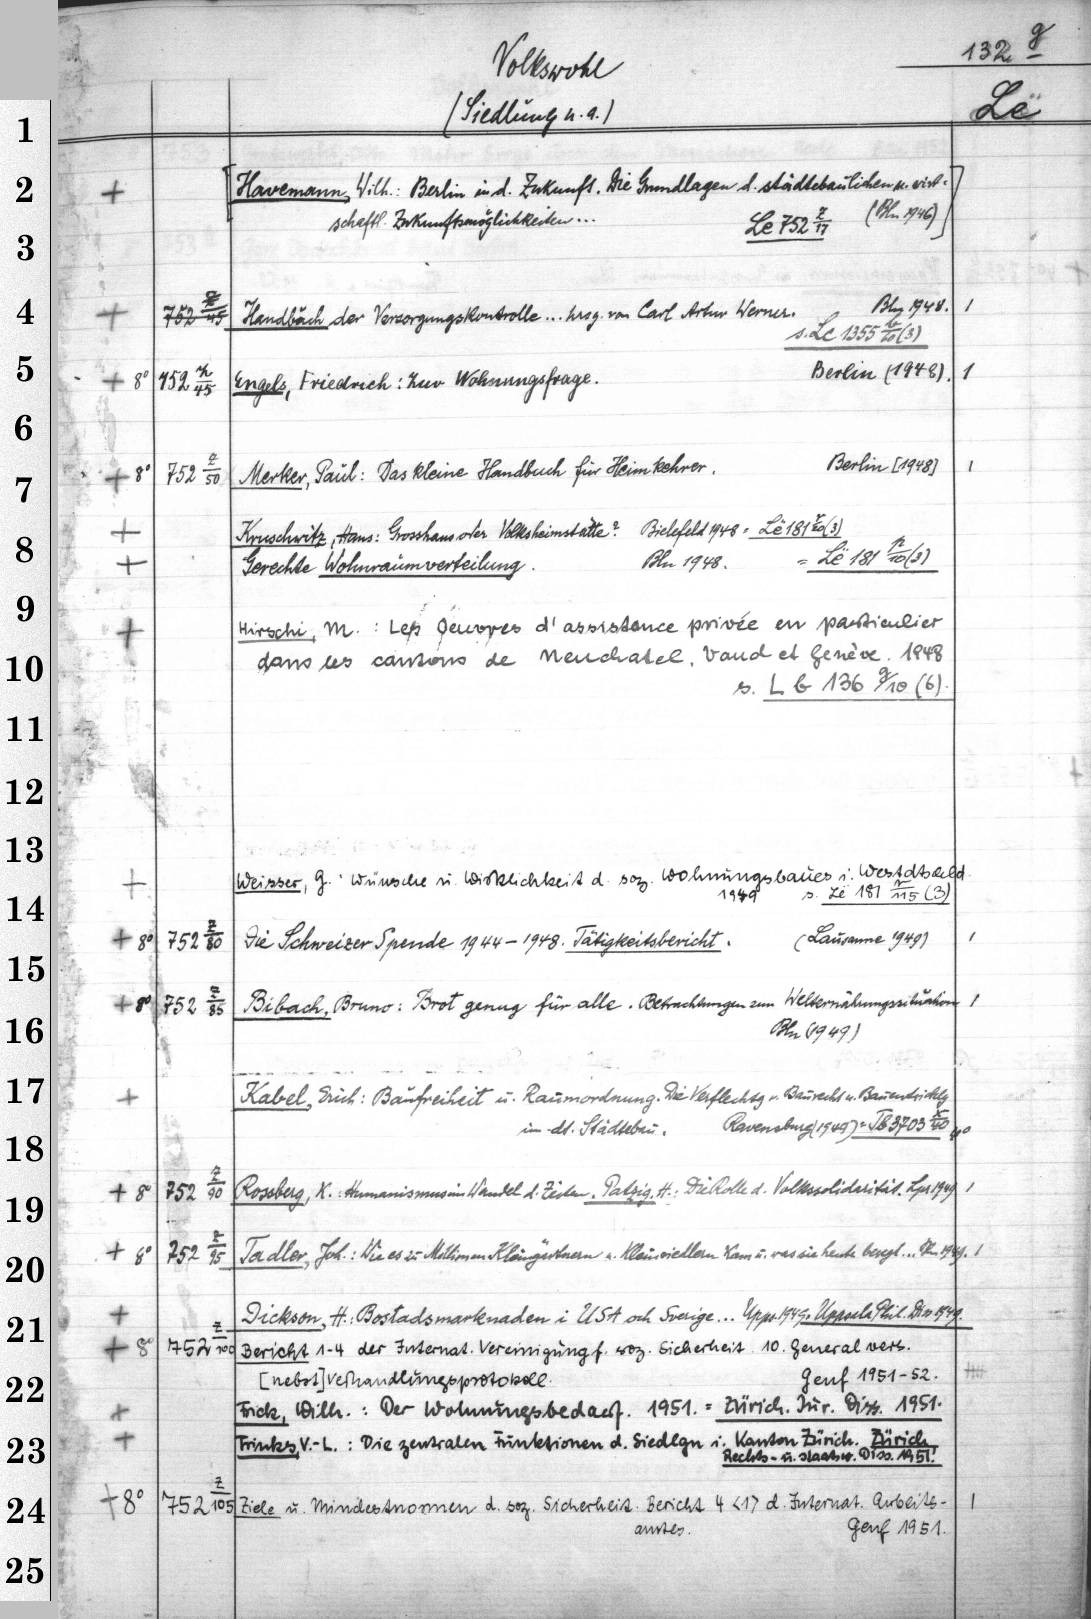 Volkswohl
132 g
(Siedlung u. a.)
Lë
1
2
3
4
5
6
7
8
9
10
11
12
13
14
15
16
17
18
19
20
21
22
23
24
25
+ [Havemann, Wilh.: Berlin in d. Zukunft. Die Grundlagen d. städtebaulichen u. wirt-
schaftl. Zukunftsmöglichkeiten... Le 752 z/17 (Bln 1946)]
+ 752 z/45 Handbuch der Versorgungskontrolle... hrsg. von Carl Artur Werner. Bln 1948. 1
s. Lc 1355 b/20 (3)
+ 8° 752 z/45 Engels, Friedrich: Zur Wohnungsfrage. Berlin (1948). 1
+ 8° 752 z/50 Merker, Paul: Das kleine Handbuch für Heimkehrer. Berlin [1948] 1
+ Kruschwitz, Hans: Grosshaus oder Volksheimstätte? Bielefeld 1948 = Lë 181 r/20 (3)
+ Gerechte Wohnraumverteilung. Bln 1948. = Lë 181 r/10 (3)
+ Hirschi, M.: Les Oeuvres d'assistance privée en particulier
dans les cantons de Neuchatel, Vaud et Genève. 1948
s. L b 136 g/10 (6).
+ Weisser, G. Wünsche u. Wirklichkeit d. soz. Wohnungsbaues i. Westdtschld.
1949 s. Lë 181 r/115 (3)
+ 8° 752 z/80 Die Schweizer Spende 1944-1948. Tätigkeitsbericht. (Lausanne 1949) 1
+ 8° 752 z/85 Bibach, Bruno: Brot genug für alle. Betrachtungen zum Welternährungssituation 1
Bln (1949)
+ Kabel, Erich: Baufreiheit u. Raumordnung. Die Verflechtg v. Baurecht u. Bauentwicklg
im dt. Städtebau. Ravensburg (1949) = Tb 3703 x/40 4°
+ 8° 752 z/90 Rossberg, K.: Humanismus im Wandel d. Zeiten. Patzig, H.: Die Rolle d. Volkssolidarität. Lpz 1949 1
+ 8° 752 z/95 Tadler, Joh.: Wie es zu Millionen Kleingärtnern u. Kleinsiedlern kam u. was sie heute bewegt... Bln 1949. 1
+ Dickson, H.: Bostadsmarknaden i USA och Sverige... Upps. 1949. Uppsala Phil. Diss 1949.
+ 8° 752 z/100 Bericht 1-4 der Internat. Vereinigung f. soz. Sicherheit 10. General vers.
[nebst] Verhandlungsprotokoll. Genf 1951-52.
+ Frick, Wilh.: Der Wohnungsbedarf. 1951. = Zürich. Jur. Diss. 1951.
+ Frinks, V.-L.: Die zentralen Funktionen d. Siedlgn i. Kanton Zürich. Zürich
Rechts- u. staatsw. Diss. 1951.
+ 8° 752 z/105 Ziele u. Mindestnormen d. soz. Sicherheit. Bericht 4 <1> d. Internat. Arbeits- 1
amtes. Genf 1951.